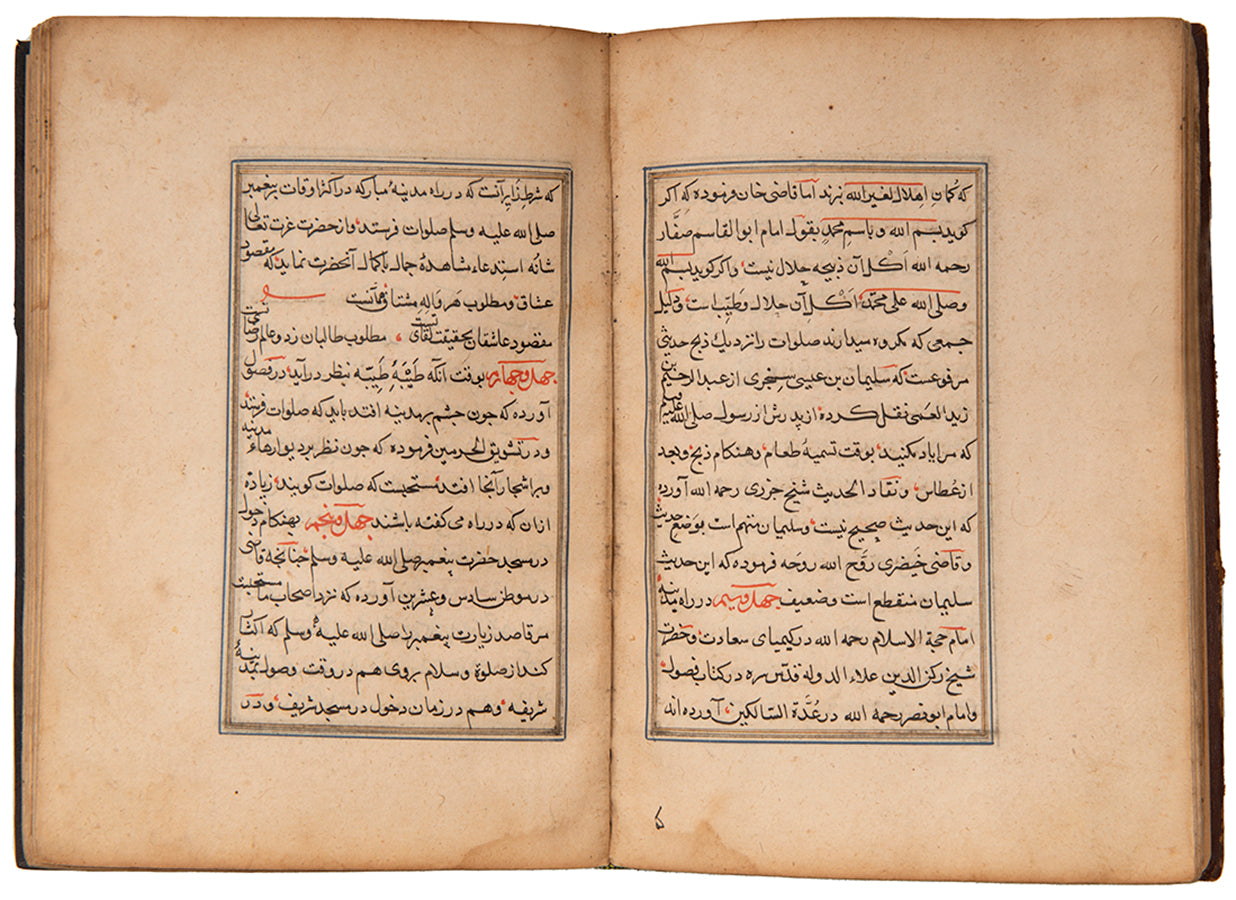 که کمان اهلال لغیر الله برند اما قاضی خان فرموده که اکر
کوید بسم الله و باسم محمد بقول امام ابو القاسم صفّار
رحمه الله اکل آن ذبیحه حلال نیست و اکر کوید بسم الله
وصلی الله علی محمد اکل آن حلال و طیّب است و دلیل
جمعی که مکروه میدارند صلوات را نزدیك ذبح حدیثی
مرفوعست که سلیمان بن عیسی سجزی از عبد الرحیم بن
زید العمی نقل کرده از پدرش از رسول صلی الله علیه وسلم
که مرا یاد مکنید بوقت تسمیهٔ طعام و هنکام ذبح و بعد
از عطاس و نقاد الحدیث شیخ جزری رحمه الله آورده
که این حدیث صحیح نیست و سلیمان متهم است بوضع حدیث
و قاضی خیضری روّح الله روحه فرموده که این حدیث
سلیمان منقطع است و ضعیف چهل وسیم در راه مدینه
امام حجة الاسلام رحمه الله در کیمیای سعادت و حضرت
شیخ رکن الدین علاء الدوله قدّس سره در کتاب فصول
و امام ابو نصر رحمه الله در عُدّة السّالکین آورده انه
که شرط زایر آنست که در راه مدینهٔ مبارکه در اکثر اوقات بر پیغمبر
صلی الله علیه وسلم صلوات فرستد و از حضرت عزت تعالی
شانُه استدعاء مشاهدهٔ جمال با کمال آنحضرت نماید که مقصود
عشاق و مطلوب هر والِه مشتاق همانست
مقصود عاشقان بحقیقت لقای تست مطلوب طالبان ز دو عالم رضای تست
چهل وچهارم بوقت آنکه طَیْبهٔ طیّبه بنظر در آید در فصول
آورده که چون چشم بر مدینه افتد باید که صلوات فرستد
و در تشویق الحرمین فرموده که چون نظر بر دیوارهاء مدینه
و بر اشجار آنجا افتد مستحبست که صلوات کویند زیاده
ازان که در راه می کفته باشند چهل وپنجم بهنکام دخول
در مسجد حضرت پیغمبر صلی الله علیه وسلم چنانچه قاضی
در موطن سادس وعشرین آورده که نزد اصحاب ما مستحبست
مر قاصد زیارت پیغمبر را صلی الله علیه وسلم که اکثار
کند از صلوة و سلام بر وی هم در وقت وصول بمدینهٔ
شریفه و هم در زمان دخول در مسجد شریف و در